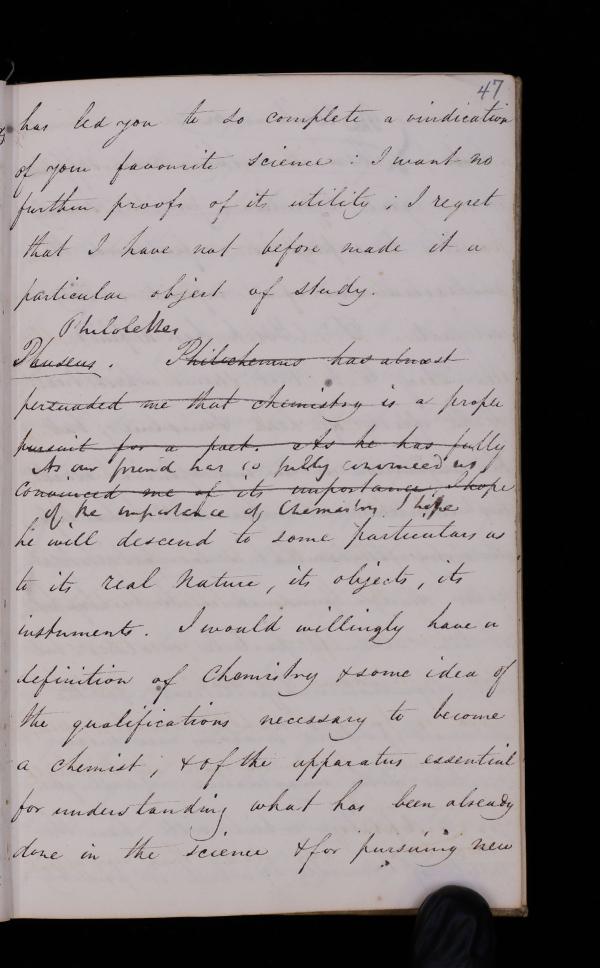 47
has led you to so complete a vindication
of your favourite science : I want no
further proofs of its utility ; I regret
that I have not before made it a
particular object of study.
Philolethes
Pauseus. Philochemus has almost
persuaded me that chemistry is a proper
pursuit for a poet. As he has fully
As our friend has so fully convinced us
convinced me of its importance, I hope
of the importance of Chemistry I hope
he will descend to some particulars as
to its real Nature, its objects, its
instruments. I would willingly have a
definition of Chemistry & some idea of
the qualifications necessary to become
a chemist ; & of the apparatus essential
for understanding what has been already
done in the science & for pursuing new